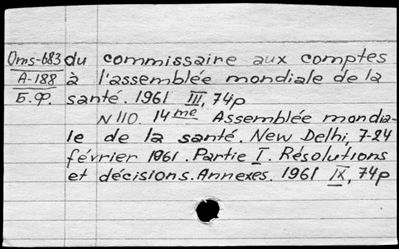 Oms-683 du commissaire aux comptes
A-188 à l'assemblée mondiale de la
Б.Ф. santé. 1961 III, 74p
N 110. 14me Assemblée mondia-
le de la santé. New Delhi, 7-24
février 1961. Partie I. Résolutions
et décisions. Annexes. 1961 IX, 74p